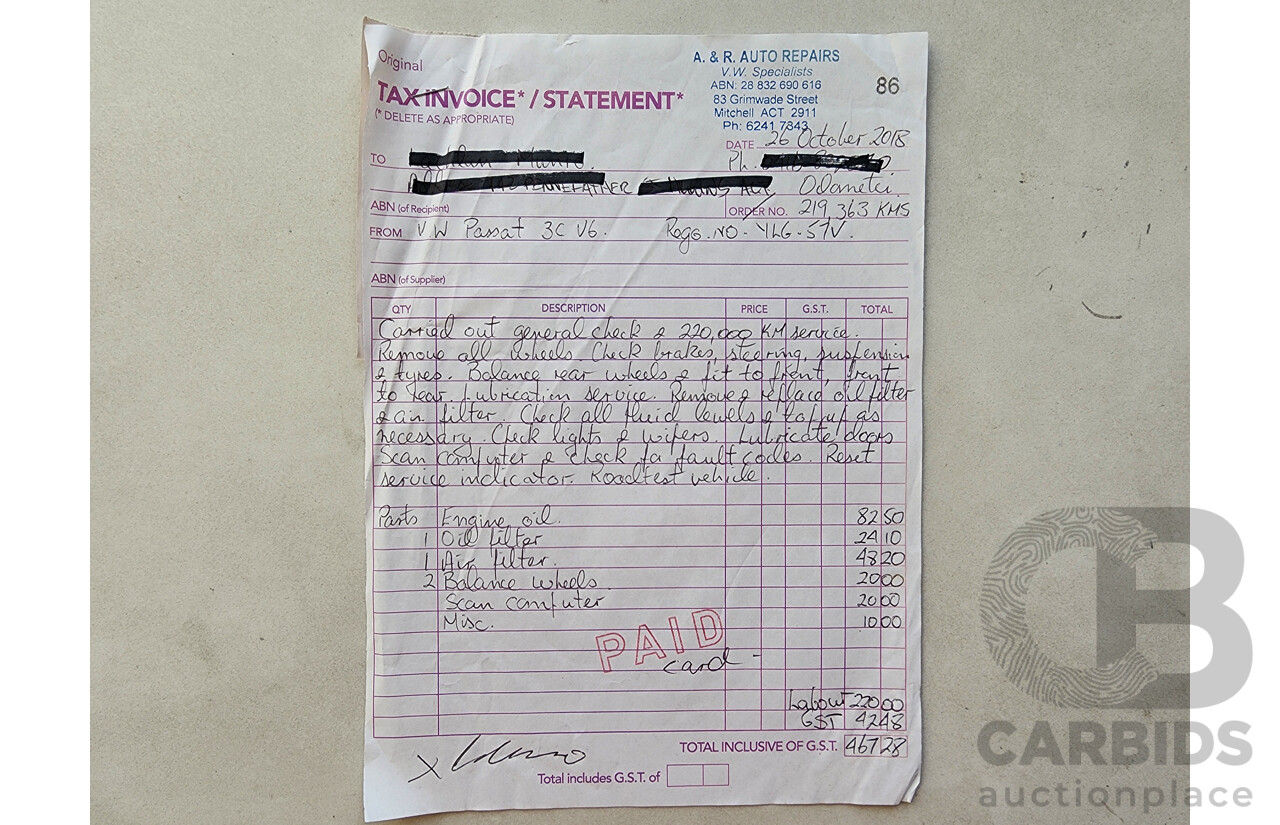 Original
TAX INVOICE* / STATEMENT*
(* DELETE AS APPROPRIATE)
A. & R. AUTO REPAIRS
V.W. Specialists
ABN: 28 832 690 616
83 Grimwade Street
Mitchell ACT 2911
Ph: 6241 7843
86
DATE 26 October 2018
TO
Ph.
Odometer
ABN (of Recipient)
ORDER NO. 219,363 KMS
FROM VW Passat 3C V6. Rego. NO - YLG-57V.
ABN (of Supplier)
QTY DESCRIPTION PRICE G.S.T. TOTAL
Carried out general check & 220,000 KM service.
Remove all wheels. Check brakes, steering, suspension
& tyres. Balance rear wheels & fit to front, front
to rear. Lubrication service. Remove & replace oil filter
& air filter. Check all fluid levels & top up as
necessary. Check lights & wipers. Lubricate doors
Scan computer & check for fault codes. Reset
service indicator. Roadtest vehicle.
Parts Engine oil. 82 50
1 Oil filter 24 10
1 Air filter. 48 20
2 Balance wheels 20 00
Scan computer 20 00
Misc. 10 00
PAID
card -
Labour 220 00
GST 42 48
TOTAL INCLUSIVE OF G.S.T. 467 28
X
Total includes G.S.T. of
CB
CARBIDS
auctionplace